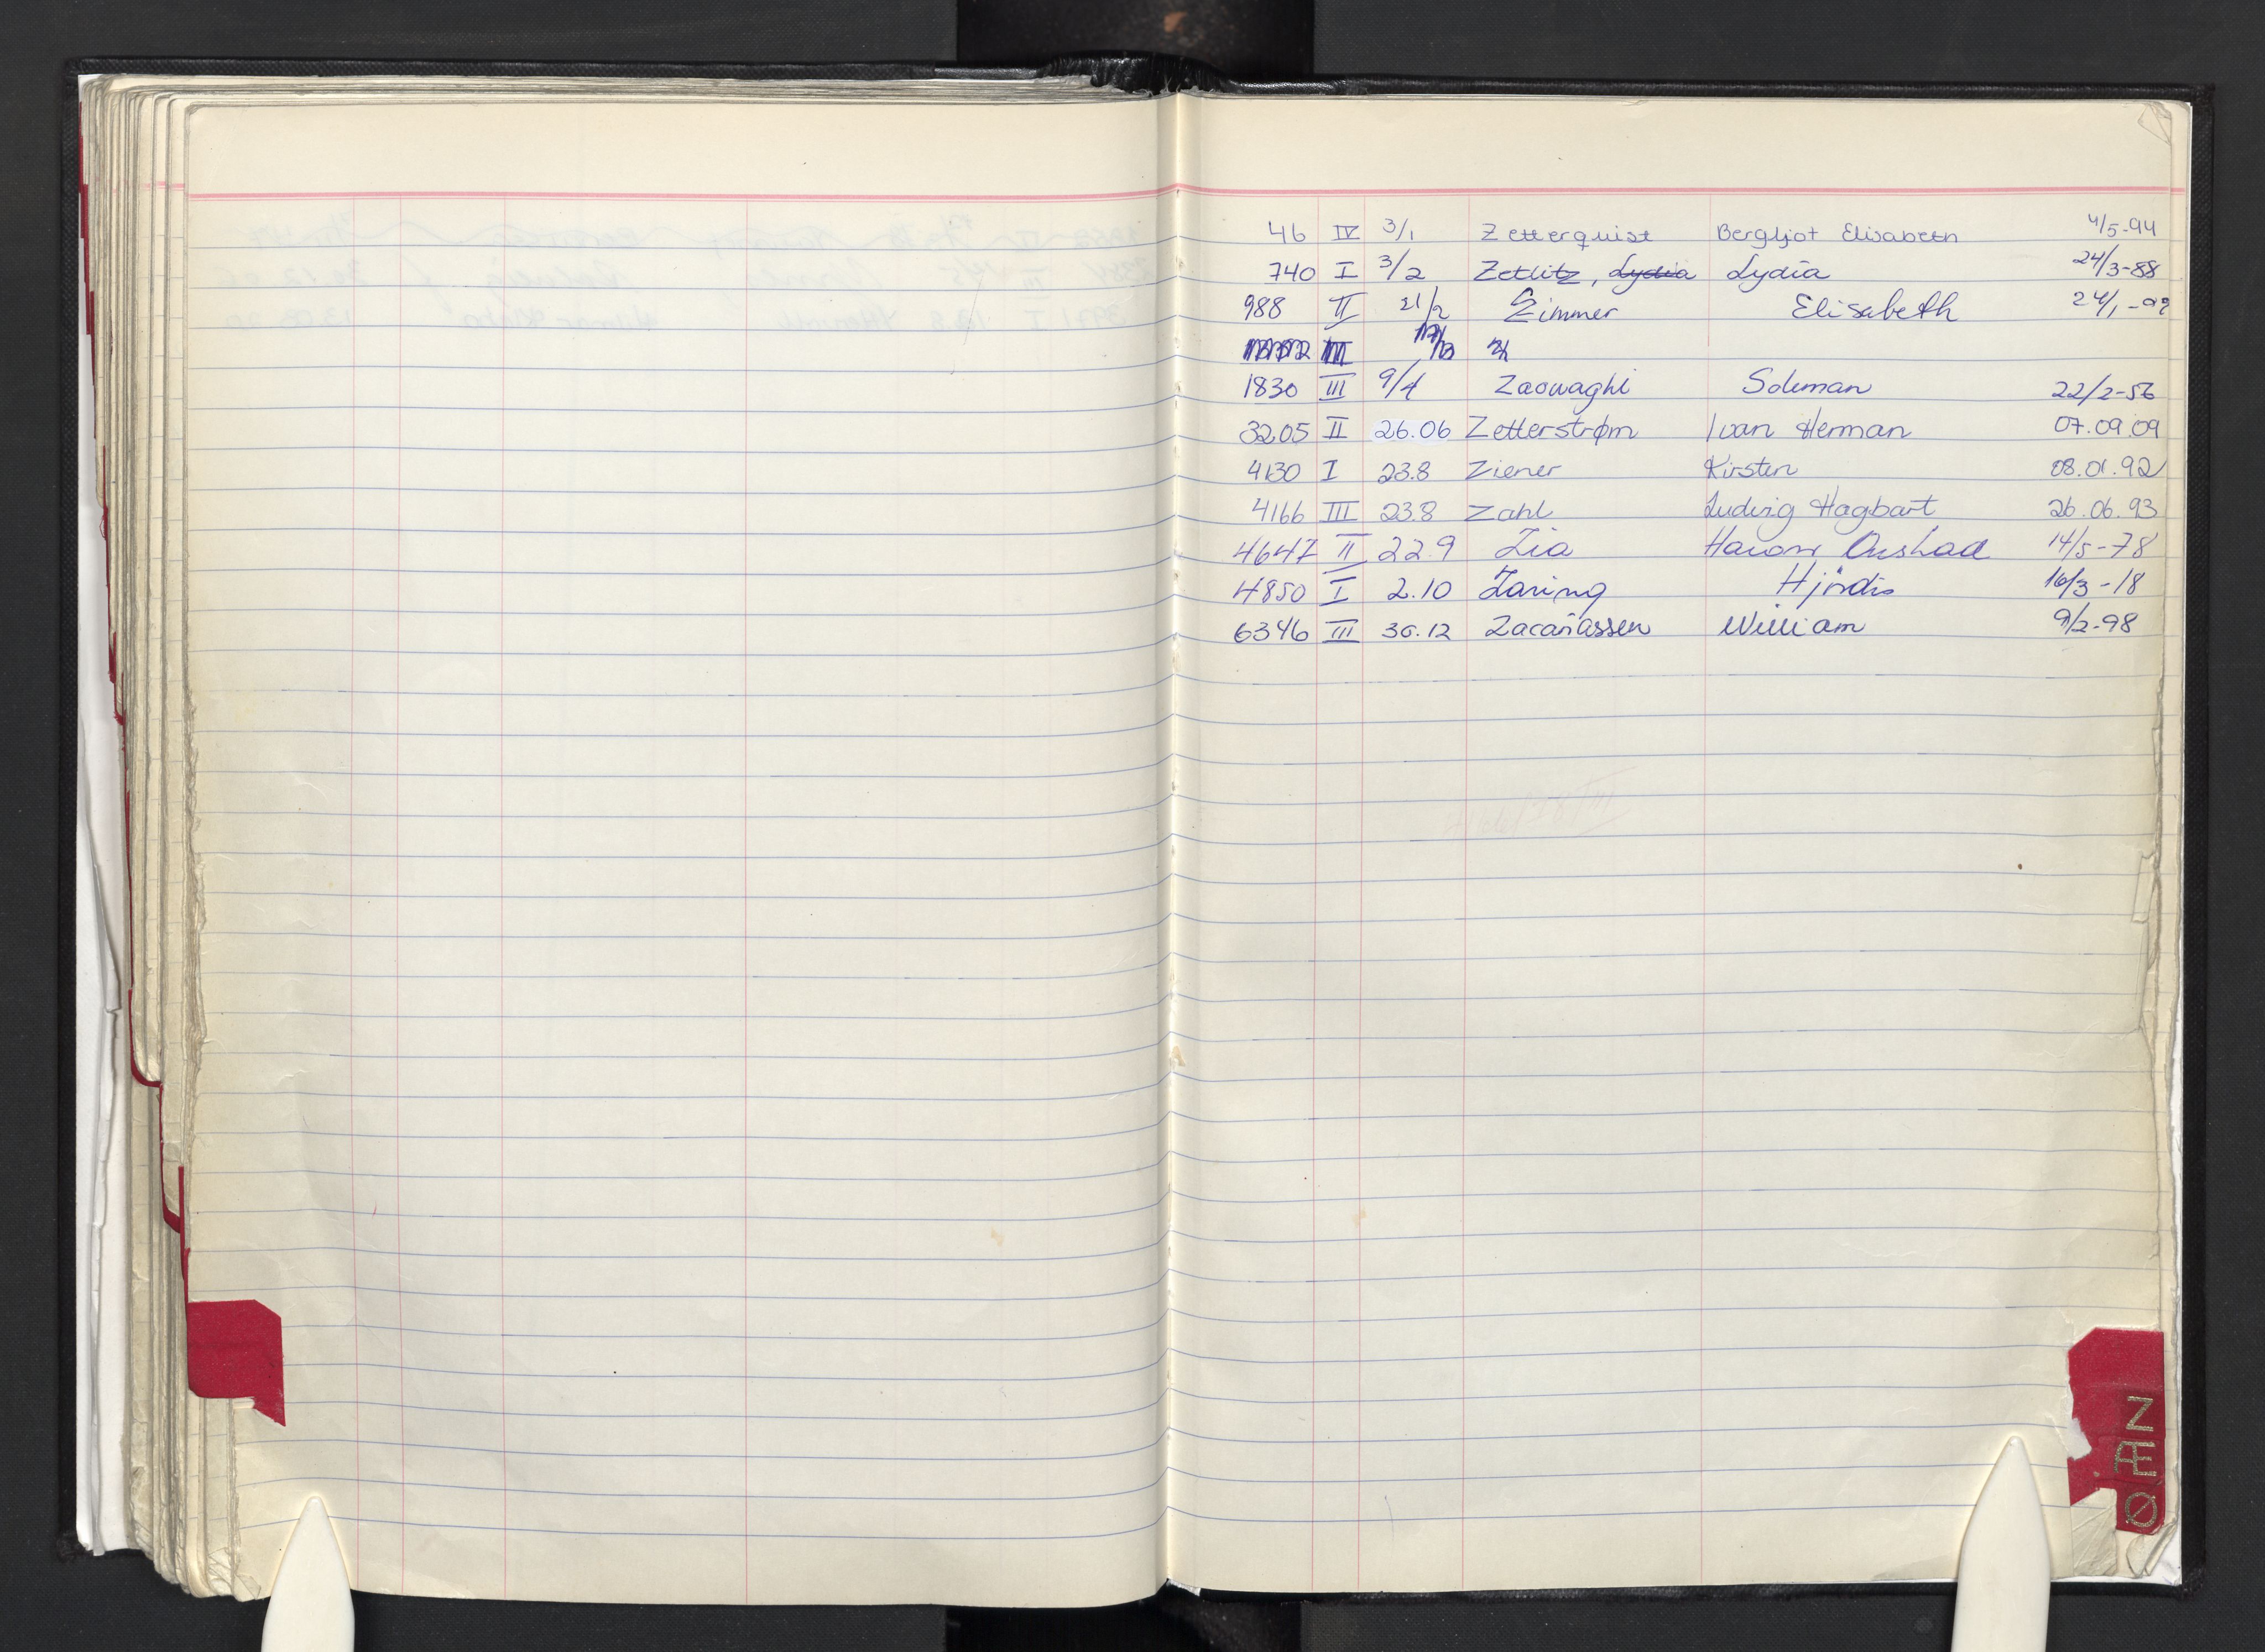 46 IV 3/1 Zetterquist Bergljot Elisabeth 4/5-94
740 I 3/2 Zetlitz, Lydia Lydia 24/3-88
988 II 21/2 Zimmer Elisabeth 24/1-
III
1830 III 9/4 Zaowaghi Soleman 22/2-56
3205 II 26.06 Zetterstrøm Ivan Herman 07.09.09
4130 I 23.8 Ziener Kirsten 08.01.92
4166 III 23.8 Zahl Ludvig Hagbart 26.06.93
4647 II 22.9 Zia 14/5-78
4850 I 2.10 Zaring Hjördis 16/3-18
6346 III 30.12 Zacariassen William 9/2-98
Z
Æ
Ø